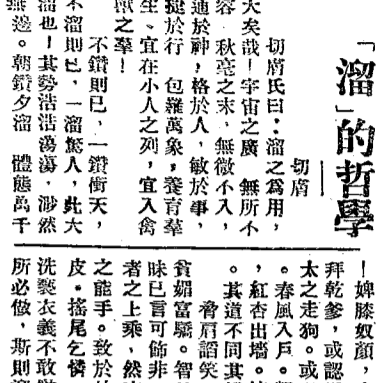 「溜」的哲學
切膚
切膚氏曰：溜之爲用，
大矣哉！宇宙之廣　無所不
容　秋毫之末，無微不入，
通於神，格於人，敏於事，
捷於行　包羅萬象，養育羣
生、宜在小人之列，宜入禽
獸之羣！
不鑽則已，一鑽衝天，
不溜則已，一溜驚人，此大
溜也！其勢浩浩蕩蕩，渺然
無邊。朝鑽夕溜　體態萬千
！婢膝奴顏，
拜乾爹，或認
太之走狗。或
。春風入戶。
，紅杏出墻。
。其道不同其
脅肩諂笑
貧媚富驕。智
昧已言可飾非
者之上乘，然
之能手。致於
皮。搖尾乞憐
洗褻衣義不敢
所必做，斯則